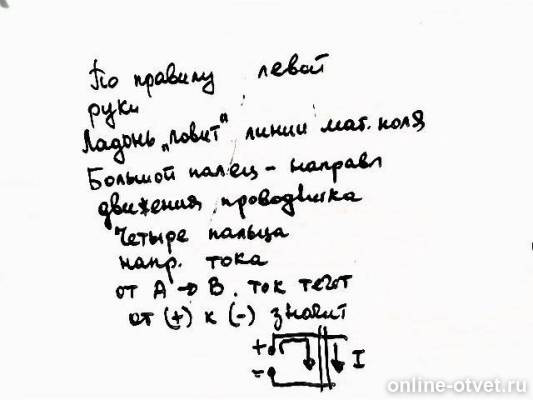 По правилу левой
руки
Ладонь „ловит“ линии маг. поля
Большой палец - направл
движения проводника
Четыре пальца
напр. тока
от А → В. ток течот
от (+) к (-) значит
+
I
-
online-otvet.ru